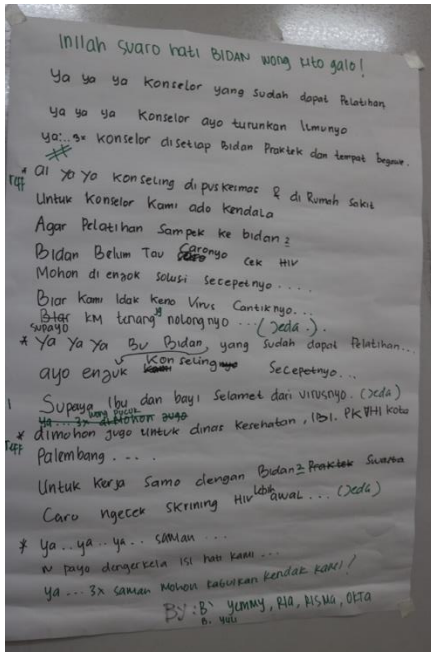 Inilah suaro hati BIDAN wong kito galo!
Ya ya ya Konselor yang sudah dapat Pelatihan
ya ya ya Konselor ayo turunkan Ilmunyo
ya... 3x Konselor disetiap Bidan Praktek dan tempat begawe.
Reff * ai yo yo Konseling di puskesmas & di Rumah Sakit
Untuk Konselor Kami ado Kendala
Agar Pelatihan Sampek ke bidan2
Bidan Belum Tau Caronyo cek HIV
Mohon di enjok solusi secepetnyo....
Biar kami Idak Keno Virus Cantiknyo...
supayo KM tenang2 nolongnyo ...(Jeda.).
* Ya Ya Ya Bu Bidan, yang sudah dapat Pelatihan...
ayo enjuk Konseling Secepetnyo...
Supaya Ibu dan bayi Selamet dari virusnyo. (Jeda)
ya... 3x wong pucuk
Reff * dimohon jugo untuk dinas Kesehatan, IBI. PKVHI Kota
Palembang....
Untuk Kerja Samo dengan Bidan2 Swasta
Caro ngecek Skrining HIV lebih awal... (Jeda)
* ya..ya..ya.. saman...
payo dengerkela isi hati kami...
ya...3x saman Mohon Kabulkan Kendak KAMI!
By: B' Yummy, RIA, RISMA, OKTA
B. Yuli